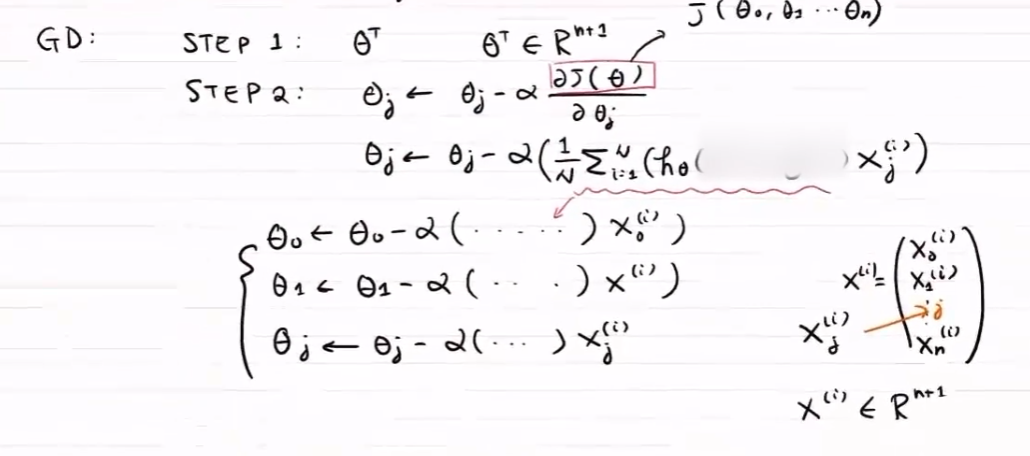 J(θ₀, θ₁ ⋯ θₙ)
GD: STEP 1: θᵀ θᵀ ∈ Rⁿ⁺¹
STEP 2: θⱼ ← θⱼ - α ∂J(θ)/∂θⱼ
θⱼ ← θⱼ - α(1/N Σᵢ₌₁ᴺ (h_θ( ) xⱼ⁽ⁱ⁾)
θ₀ ← θ₀ - α(······) x₀⁽ⁱ⁾)
θ₁ ← θ₁ - α(·· ·) x⁽ⁱ⁾)
θⱼ ← θⱼ - α(···) xⱼ⁽ⁱ⁾
x⁽ⁱ⁾ = (x₀⁽ⁱ⁾
x₁⁽ⁱ⁾
⋮ j
xₙ⁽ⁱ⁾)
xⱼ⁽ⁱ⁾
x⁽ⁱ⁾ ∈ Rⁿ⁺¹